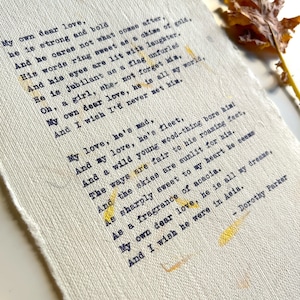 My own dear love,
he is strong and bold
And he cares not what comes after.
His words ring sweet as a chime of gold,
And his eyes are lit with laughter.
He is jubilant as a flag unfurled
Oh, a girl, she'd not forget him.
My own dear love, he is all my world,
And I wish I'd never met him.
My love, he's mad,
And my love, he's fleet,
And a wild young wood-thing bore him!
The ways are fair to his roaming feet,
And the skies are sunlit for him.
As sharply sweet to my heart he seems
As a fragrance of acacia.
My own dear love, he is all my dreams,
And I wish he were in Asia.
- Dorothy Parker